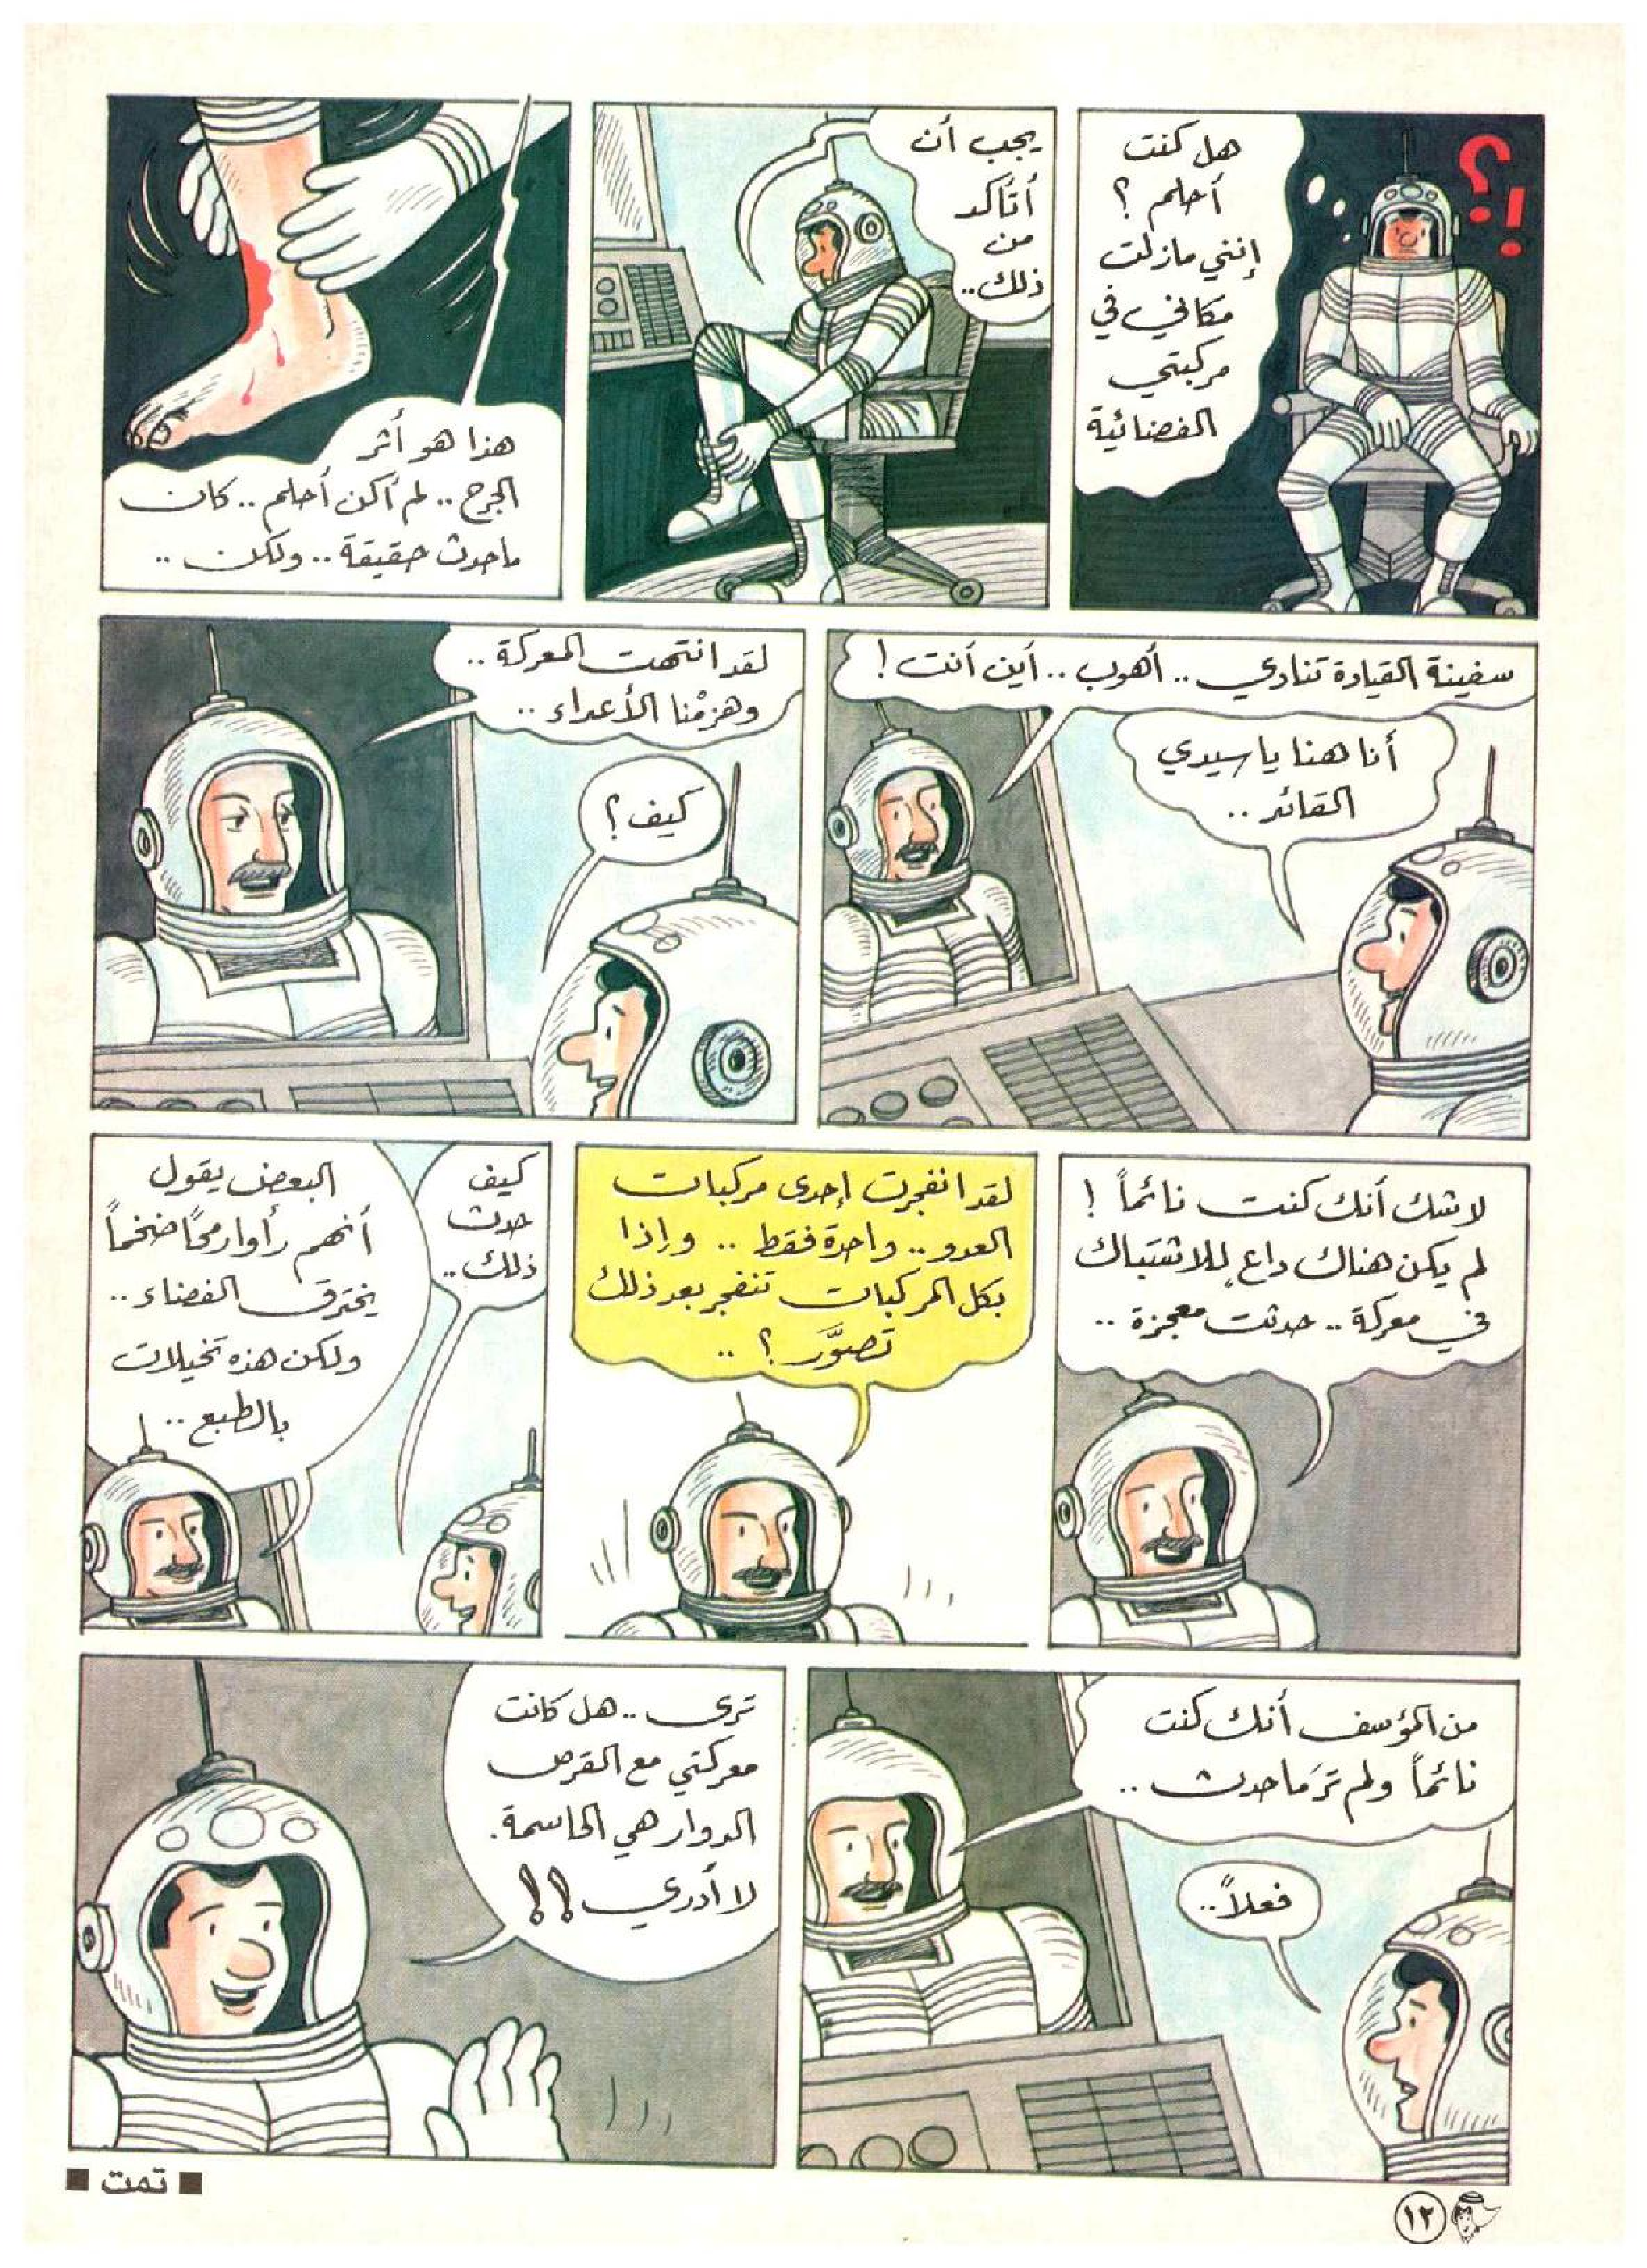 ؟!!
هل كنت
أحلم ؟
إنني مازلت
مكاني في
مركبتي
الفضائية
يجب أن
أتأكد
من
ذلك..
هذا هو أثر
الجرح .. لم أكن أحلم .. كان
ماحدث حقيقة .. ولكن ..
سفينة القيادة تنادي .. أهوب .. أين أنت !
أنا هنا يا سيدي
القائد ..
لقد انتهت المعركة ..
وهزمْنا الأعداء ..
كيف ؟
لاشك أنك كنت نائماً !
لم يكن هناك داعٍ للاشتباك
في معركة .. حدثت معجزة ..
لقد انفجرت إحدى مركبات
العدو .. واحدة فقط .. وإذا
بكل المركبات تنفجر بعد ذلك
تصوَّر ؟ ..
كيف
حدث
ذلك ..
البعض يقول
أنهم رأوا رمحاً ضخماً
يخترق الفضاء ..
ولكن هذه تخيلات
بالطبع ..
من المؤسف أنك كنت
نائماً ولم ترَ ماحدث ..
فعلاً ..
ترى .. هل كانت
معركتي مع القرص
الدوار هي الحاسمة.
لا أدري !!
■ تمت ■
١٢